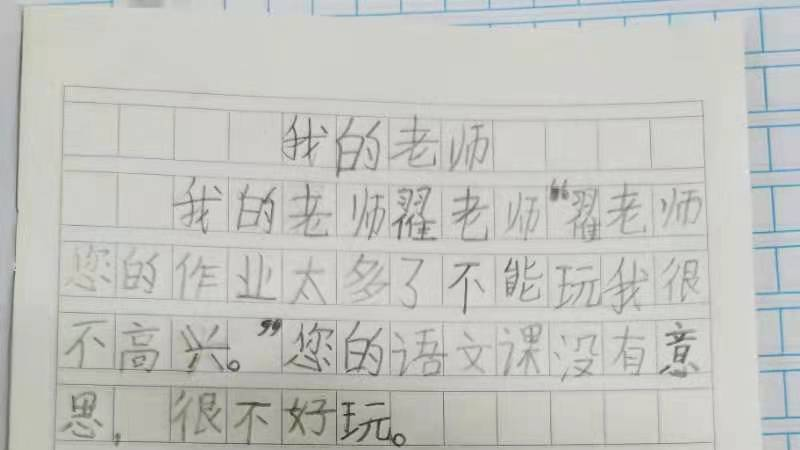 我的老师
我的老师翟老师“翟老师
您的作业太多了不能玩我很
不高兴。”您的语文课没有意
思，很不好玩。